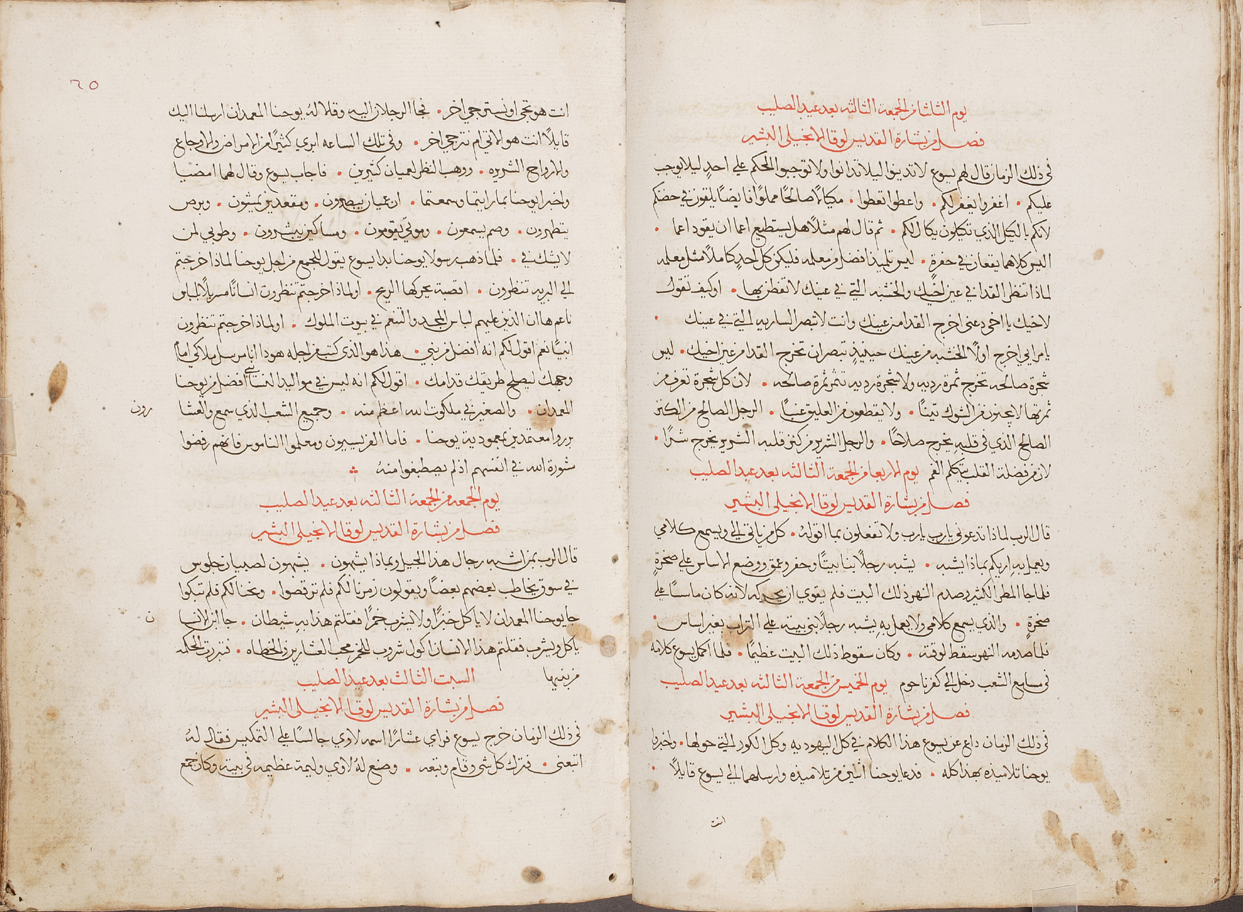 يوم الثلثا من الجمعة الثالثه بعد عيد الصليب
فصل من بشارة القديس لوقا الانجيلى البشير
فى ذلك الزمان قال لهم يسوع لا تدينوا ليلا تدانوا ولا توجبوا الحكم على احدٍ ليلا يوجب
عليكم • اغفروا يغفر لكم • واعطوا تعطوا • مكيالًا صالحًا مملوًا فايضًا يلقون فى حضنكم
لانكم بالكيل الذي تكيلون يكال لكم • ثم قال لهم مثلًا هل يستطيع اعما ان يقود اعما •
اليس كلاهما يقعان فى حفرةٍ • ليس تلميذ افضل من معلمه فليكن كل احدٍ كاملًا مثل معلمه
لماذا تنظر القدا فى عين اخيك والخشبه التى فى عينك لا تفطن بها • او كيف تقول
لاخيك يا اخى دعنى اخرج القدا من عينك وانت لا تبصر الساريه التى فى عينك •
يا مرايى اخرج اولًا الخشبه من عينك حينيذٍ تبصر ان تخرج القدا من عين اخيك • ليس
شجرة صالحه تخرج ثمرة رديه ولا شجرة رديه تثمر ثمرة صالحه • لان كل شجرة تعرف من
ثمرتها لا يجتنون من الشوك تينًا • ولا يقطفون من العليق عنبًا • الرجل الصالح من الكنز
الصالح الذي فى قلبه يخرج صلاحًا • والرجل الشرير من كنز قلبه الشرير يخرج شرًا •
لان من فضلة القلب يتكلم الفم يوم الاربعا من الجمعة الثالثه بعد عيد الصليب
فصل من بشارة القديس لوقا الانجيلى البشير
قال الرب لماذا تدعونى يا رب يا رب ولا تفعلون بما اقوله • كل من ياتى الي ويسمع كلامي
ويعمل به اريكم بماذا يشبه • يشبه رجلًا بنا بيتًا وحفر وعمق ووضع الاساس على صخرةٍ
فلما جا المطر الكثير وصدم النهر ذلك البيت فلم يقوي ان يحركه لانه كان ماسسًا على
صخرةٍ • والذي يسمع كلامى ولا يعمل به يشبه رجلا بنى بيته على التراب بغير اساس •
فلما صدمه النهر سقط لوقته • وكان سقوط ذلك البيت عظيمًا • فلما اكمل يسوع كلامه
فى مسامع الشعب دخل الى كفرناحوم يوم الخميس من الجمعة الثالثه بعد عيد الصليب
فصل من بشارة القديس لوقا الانجيلى البشير
فى ذلك الزمان ذاع عن يسوع هذا الكلام فى كل اليهوديه وكل الكور التى حولها • واخبر
يوحنا تلاميذه بهذا كله • فدعا يوحنا اثنين من تلاميذه وارسلهما الى يسوع قايلًا •
انت
٦٥
انت هو تجى او نسترجى اخر • فجا الرجلان اليه وقالا له يوحنا المعمدان ارسلنا اليك
قايلًا انت هو الاتى ام نترجى اخر • وفى تلك الساعه ابري كثيرًا من الامراض والاوجاع
والارواح الشريره • ووهب النظر لعميان كثيرين • فاجاب يسوع وقال لهما امضيا
واخبرا يوحنا بما رايتما وسمعتما • ان عميان يبصرون • ومقعدين يمشون • وبرص
يتطهرون • وصم يسمعون • وموتى يقومون • ومساكين يبشرون • وطوبى لمن
لا يشك فى • فلما ذهب رسولا يوحنا بدا يسوع يقول للجمع من اجل يوحنا لماذا خرجتم
الى البريه تنظرون • اقصبة يحركها الريح • او لماذا خرجتم تنظرون انسانًا مسربلًا بلباس
ناعم ها ان الذين عليهم لباس المجد والتنعم فى بيوت الملوك • او لماذا خرجتم تنظرون
انبيًا نعم اقول لكم انه افضل من نبي • هذا هو الذي كتب من اجله هوذا انا مرسل ملاكى امام
وجهك ليصلح طريقك قدامك • اقول لكم انه ليس فى مواليد النسا نبي افضل من يوحنا
المعمدان • والصغير فى ملكوت الله اعظم منه • وجميع الشعب الذي سمع والعشا
رون
برروا معتمدين بمعمودية يوحنا • فاما الفريسيون ومعلموا الناموس فانهم رفضوا
مشورة الله فى انفسهم اذ لم يصطبغوا منه
يوم الجمعه من الجمعة الثالثه بعد عيد الصليب
فصل من بشارة القديس لوقا الانجيلى البشير
قال الرب بمن اشبه رجال هذا الجيل وبماذا يشبهون • يشبهون لصبيان جلوس
فى سوق يخاطب بعضهم بعضًا ويقولون زمرنا لكم فلم ترقصوا • ونحنا لكم فلم تبكوا
جا يوحنا المعمدان لا ياكل خبزًا ولا يشرب خمرًا فقلتم هذا به شيطان • جا ابن الانسا
ن
ياكل ويشرب فقلتم هذا الانسان اكول شروب للخمر محب العشارين والخطاه • فتبررت الحكمه
من بنيها السبت الثالث بعد عيد الصليب
فصل من بشارة القديس لوقا الانجيلى البشير
فى ذلك الزمان خرج يسوع فراي عشارًا اسمه لاوي جالسًا على التمكيس فقال لهُ
اتبعنى • فترك كل شى وقام وتبعه • وصنع لهُ لاوي وليمة عظيمه فى بيته وكان جمع